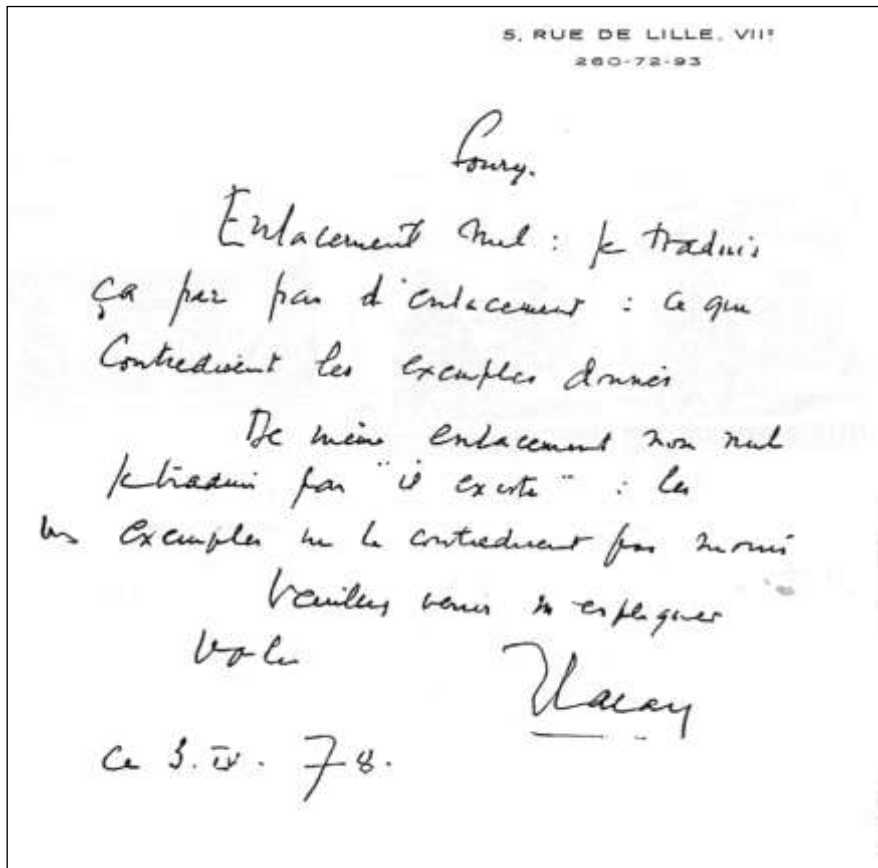 5, RUE DE LILLE. VIIᵉ
260-72-93
Soury.
Enlacement nul : je traduis
ça par pas d'enlacement : ce que
contredisent les exemples donnés
De même enlacement non nul
je traduis par "il existe" : les
exemples ne le contredisent pas moins
Veuillez venir m'expliquer
Votre
JLacan
ce 3. IV. 78.